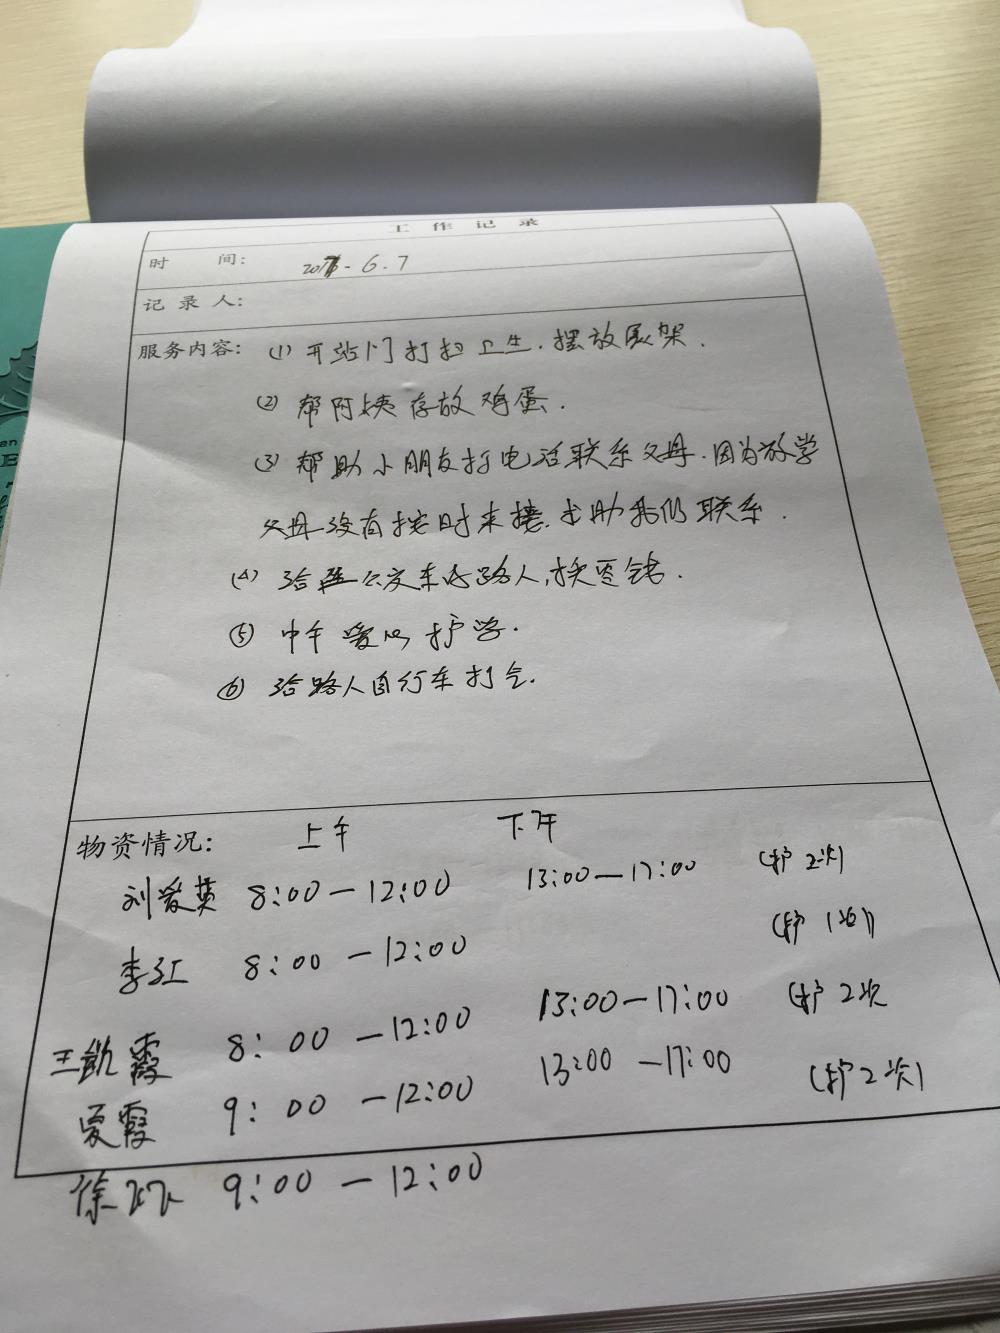 工作记录
时 间: 6.7
记录人:
服务内容: (1) 开站门打扫卫生.摆放展架.
(2) 帮阿姨存放鸡蛋.
(3) 帮助小朋友打电话联系父母.因为放学
父母没有按时来接.求助我们联系.
(4) 给 公交车 路人,换零钱.
(5) 中午爱心护学.
(6) 给路人自行车打气.
物资情况: 上午 下午
刘爱英 8:00—12:00 13:00—17:00 (护2次)
李红 8:00—12:00 (护1次)
王凯霞 8:00—12:00 13:00—17:00 (护2次
夏霞 9:00—12:00 13:00—17:00 (护2次)
徐 9:00—12:00